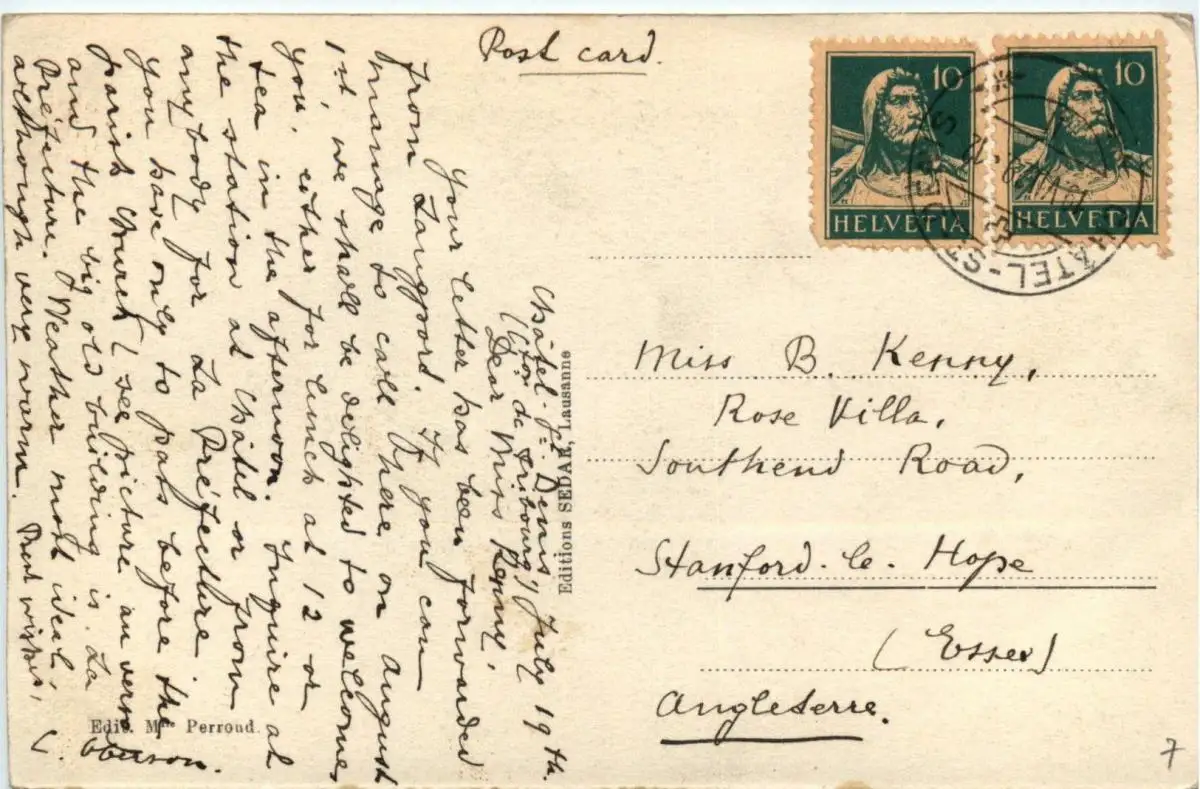 Post card.
Châtel-St-Denis July 19th.
(Cton de Fribourg)
Dear Miss Kenny,
Your letter has been forwarded
from Langport. If you can
manage to call there, on August
1st, we shall be delighted to welcome
you, either for lunch at 12 or
tea in the afternoon. Inquire at
the station at Châtel or from
anybody for La Préfecture
you have only to pass before the
parish church (see picture au verso
and the big old building is La
Préfecture. Weather not ideal
although very warm. Best wishes,
Oberson.
Edit. Mme Perroud.
Editions SEDAR, Lausanne
10
HELVETIA
10
HELVETIA
CHÂTEL-ST-DENIS
Miss B. Kenny,
Rose Villa,
Southend Road,
Stanford-le-Hope
(Essex)
Angleterre.
7